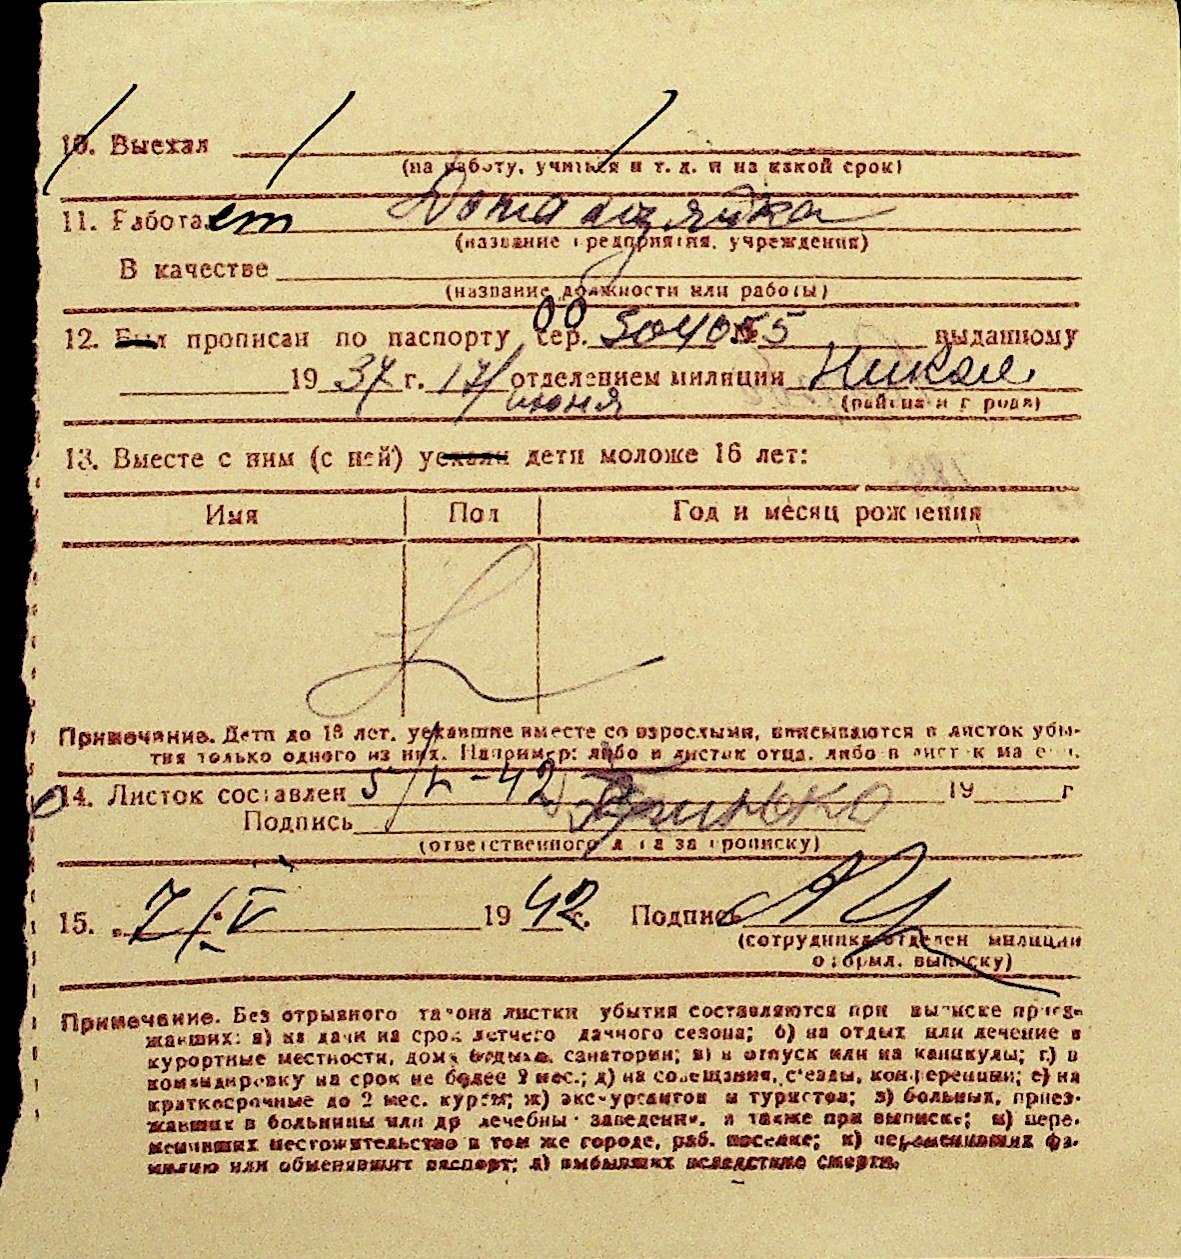 10. Выехал
(на работу, учиться и т. д. и на какой срок)
11. Работает Домохозяйка
(название предприятия, учреждения)
В качестве
(название должности или работы)
12. Был прописан по паспорту сер. 00 № 504055 выданному
19 37 г. 17/ июня отделением милиции Никол.
(района и города)
13. Вместе с ним (с ней) уехали дети моложе 16 лет:
Имя Пол Год и месяц рождения
Примечание. Дети до 16 лет, уехавшие вместе со взрослыми, вписываются в листок убы-
тия только одного из них. Например: либо в листок отца, либо в листок матери.
14. Листок составлен 5/V-42 19 г
Подпись Гринько
(ответственного лица за прописку)
15. 7/V 1942 г. Подпись
(сотрудника отделен милиции
оформл. выписку)
Примечание. Без отрывного талона листки убытия составляются при выписке приез-
жавших: а) на дачи на срок летнего дачного сезона; б) на отдых или лечение в
курортные местности, дома отдыха, санатории; в) в отпуск или на каникулы; г) в
командировку на срок не более 2 мес.; д) на совещания, съезды, конференции; е) на
краткосрочные до 2 мес. курсы; ж) экскурсантов и туристов; з) больных, приез-
жавших в больницы или др лечебны заведения, а также при выписке; и) пере-
менивших местожительство в том же городе, раб. поселке; к) переменивших фа-
милию или обменявших паспорт; л) выбывших вследствие смерти.